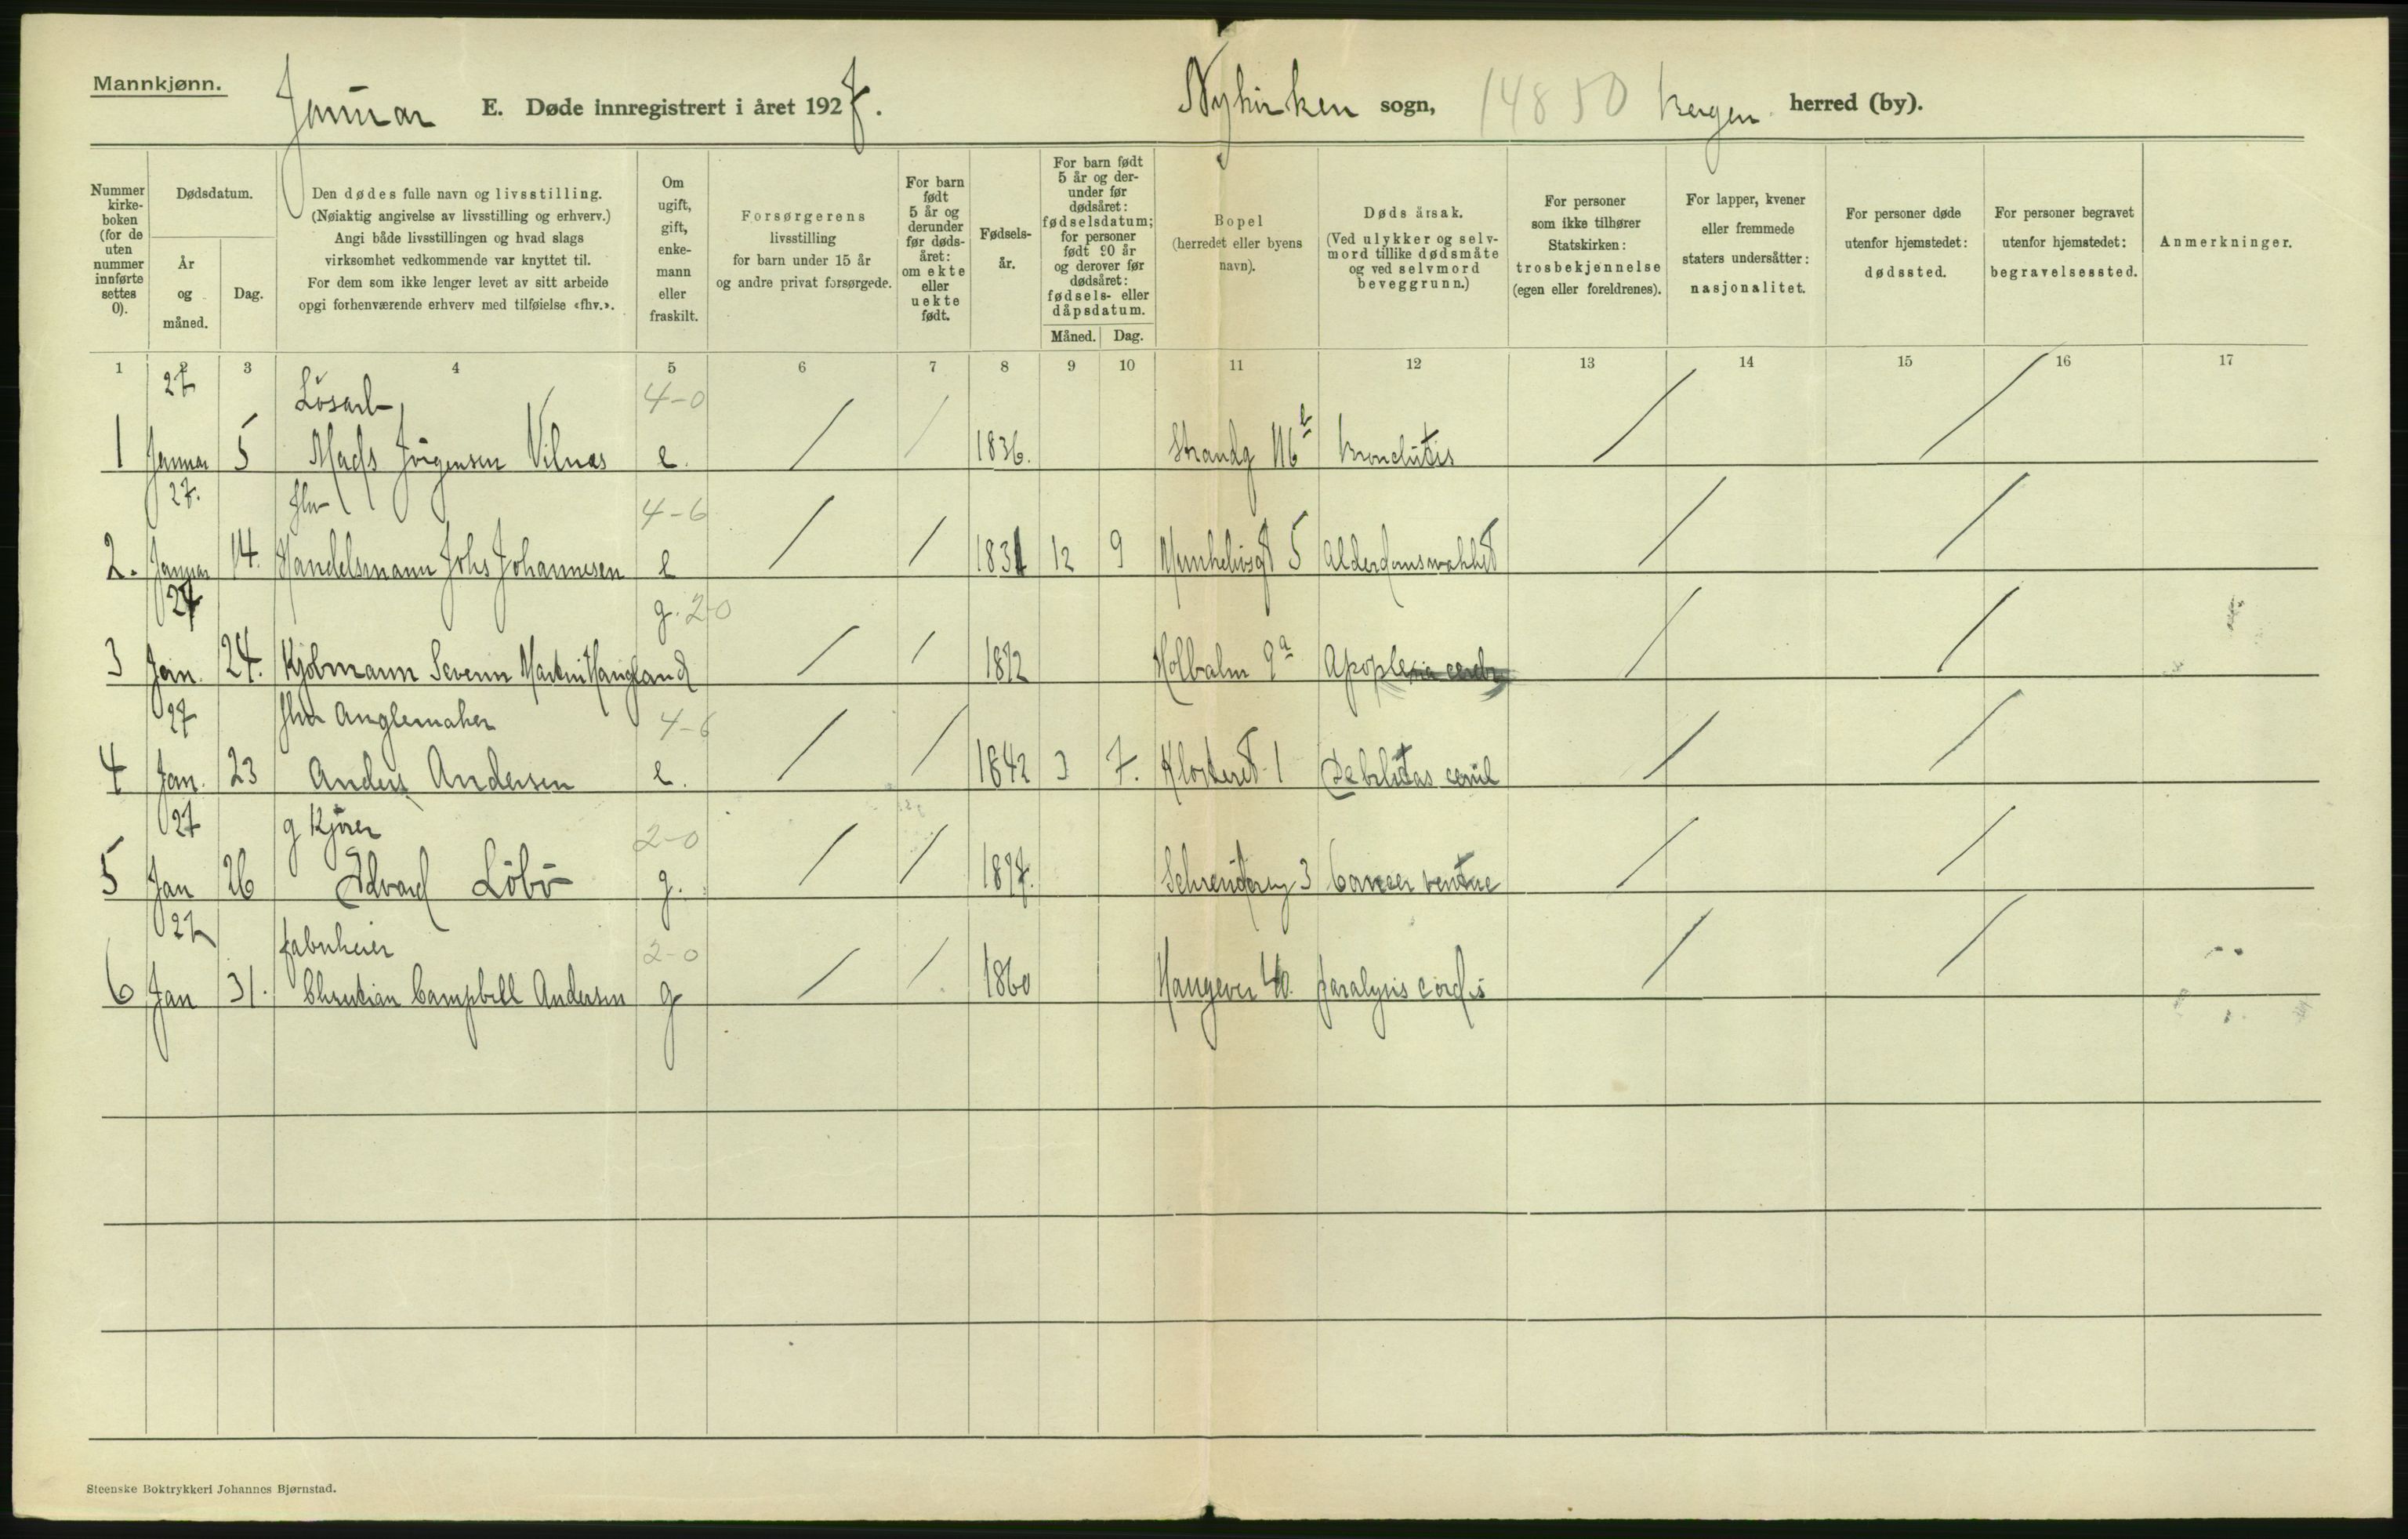 Mannkjønn.
Januar E. Døde innregistrert i året 1927. Nykirken sogn, 14850 Bergen herred (by).
Nummer kirke-boken (for de uten nummer innførte settes 0).
Dødsdatum.
År og måned.
Dag.
Den dødes fulle navn og livsstilling.
(Nøiaktig angivelse av livsstilling og erhverv.)
Angi både livsstillingen og hvad slags
virksomhet vedkommende var knyttet til.
For dem som ikke lenger levet av sitt arbeide
opgi forhenværende erhverv med tilføielse «fhv.».
Om ugift, gift, enke-mann eller fraskilt.
Forsørgerens
livsstilling
for barn under 15 år
og andre privat forsørgede.
For barn født 5 år og derunder før døds-året: om ekte eller uekte født.
Fødsels-år.
For barn født 5 år og der-under før dødsåret: fødselsdatum; for personer født 90 år og derover før dødsåret: fødsels- eller dåpsdatum.
Måned. Dag.
Bopel
(herredet eller byens
navn).
Døds årsak.
(Ved ulykker og selv-
mord tillike dødsmåte
og ved selvmord
beveggrunn.)
For personer
som ikke tilhører
Statskirken:
trosbekjennelse
(egen eller foreldrenes).
For lapper, kvener
eller fremmede
staters undersåtter:
nasjonalitet.
For personer døde
utenfor hjemstedet:
dødssted.
For personer begravet
utenfor hjemstedet:
begravelsessted.
Anmerkninger.
1 2 3 4 5 6 7 8 9 10 11 12 13 14 15 16 17
27 Løsarb 4-0
1 Januar 5 Mads Jörgensen Vilnes e. / / 1836. Strandg 116 b Bronchitis / /
27. fhv 4-6
2. Januar 14. Handelsmann Johs Johannesen e / / 1831 12 9 Munkelivsgt 5 Alderdomssvakhet / /
27 g. 2-0
3 Jan. 24. Kjøbmann Severin Martin Haugland / / 1872 Holbalm 9a Apoplexia cerebr / /
27 fhv Anglemaker 4-6
4 Jan. 23 Anders Andersen e. / / 1842 3 7. Klosteret 1 Debilitas senil / /
27 g Kjører 2-0
5 Jan 26 Edvard Löbö g. / / 1877. 3 Cancer ventric / /
27 fabrikeier 2-0
6 Jan 31. Christian Campbell Andersen g / / 1860 Haugevei 40. paralysis cordis / /
Steenske Boktrykkeri Johannes Bjørnstad.